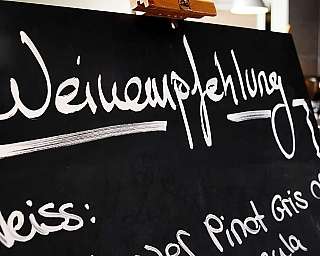 Weinempfehlung
Weiss:
Pinot Gris